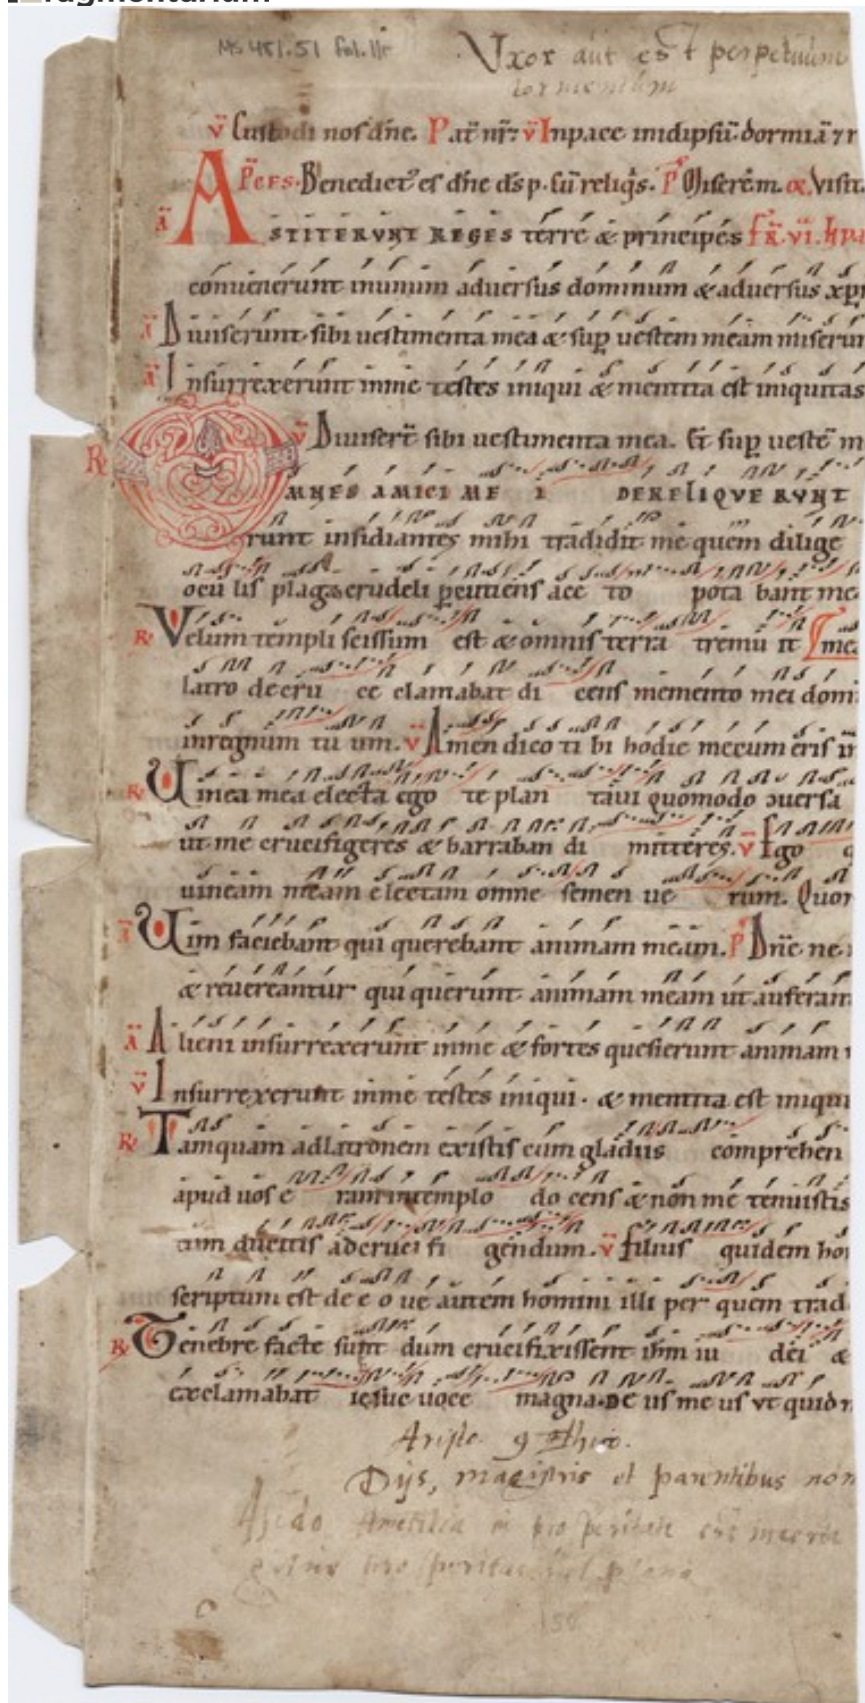 Fragmentarium
MS 481.51 fol. 11r
Uxor aut est perpetuum
tormentum
v Custodi nos dne. Pat nr. v Inpace inidipsu dormia 7 r
A Pces. Benedict es dne ds p. su religs. P Miserem. or Visit.
a STITERUNT REGES terre & principes FR. VI. 
convenerunt inunum adversus dominum & adversus xpm
a Diviserunt sibi vestimenta mea & sup vestem meam miserun
a Insurrexerunt inme testes iniqui & mentita est iniquitas
v Divisert sibi vestimenta mea. Et sup veste m
R OMNES AMICI ME I DERELIQUE RUNT
runt insidiantes mihi tradidit me quem dilige
ocu lis plaga crudeli pcutiens ace to pota bant me
R Velum templi scissum est & omnis terra tremu it me
latro decru ce clamabat di cens memento mei domi
inregnum tu um. v Amen dico ti bi hodie mecum eris in
R Vinea mea electa ego te plan tavi quomodo ɔversa
ut me crucifigeres & barraban di mitteres. v Ego q
vineam meam electam omne semen ve rum. Quom
a Vim faciebant qui querebant animam meam. P Dne ne
& revereantur qui querunt animam meam ut auferan
a Alieni insurrexerunt inme & fortes quesierunt animam
v Insurrexerunt inme testes iniqui. & mentita est iniqui
R Tamquam adlatronem existis cum gladiis comprehen
apud vos e ram intemplo do cens & non me tenuistis
cum ducitis adcruci fi gendum. v Filius quidem ho
scriptum est de e o ve autem homini illi per quem trad
R Tenebre facte sunt dum crucifixissent ihm iu dei &
exclamabat iesus voce magna. DE us me us ut quid
Dijs, magistris et parentibus non